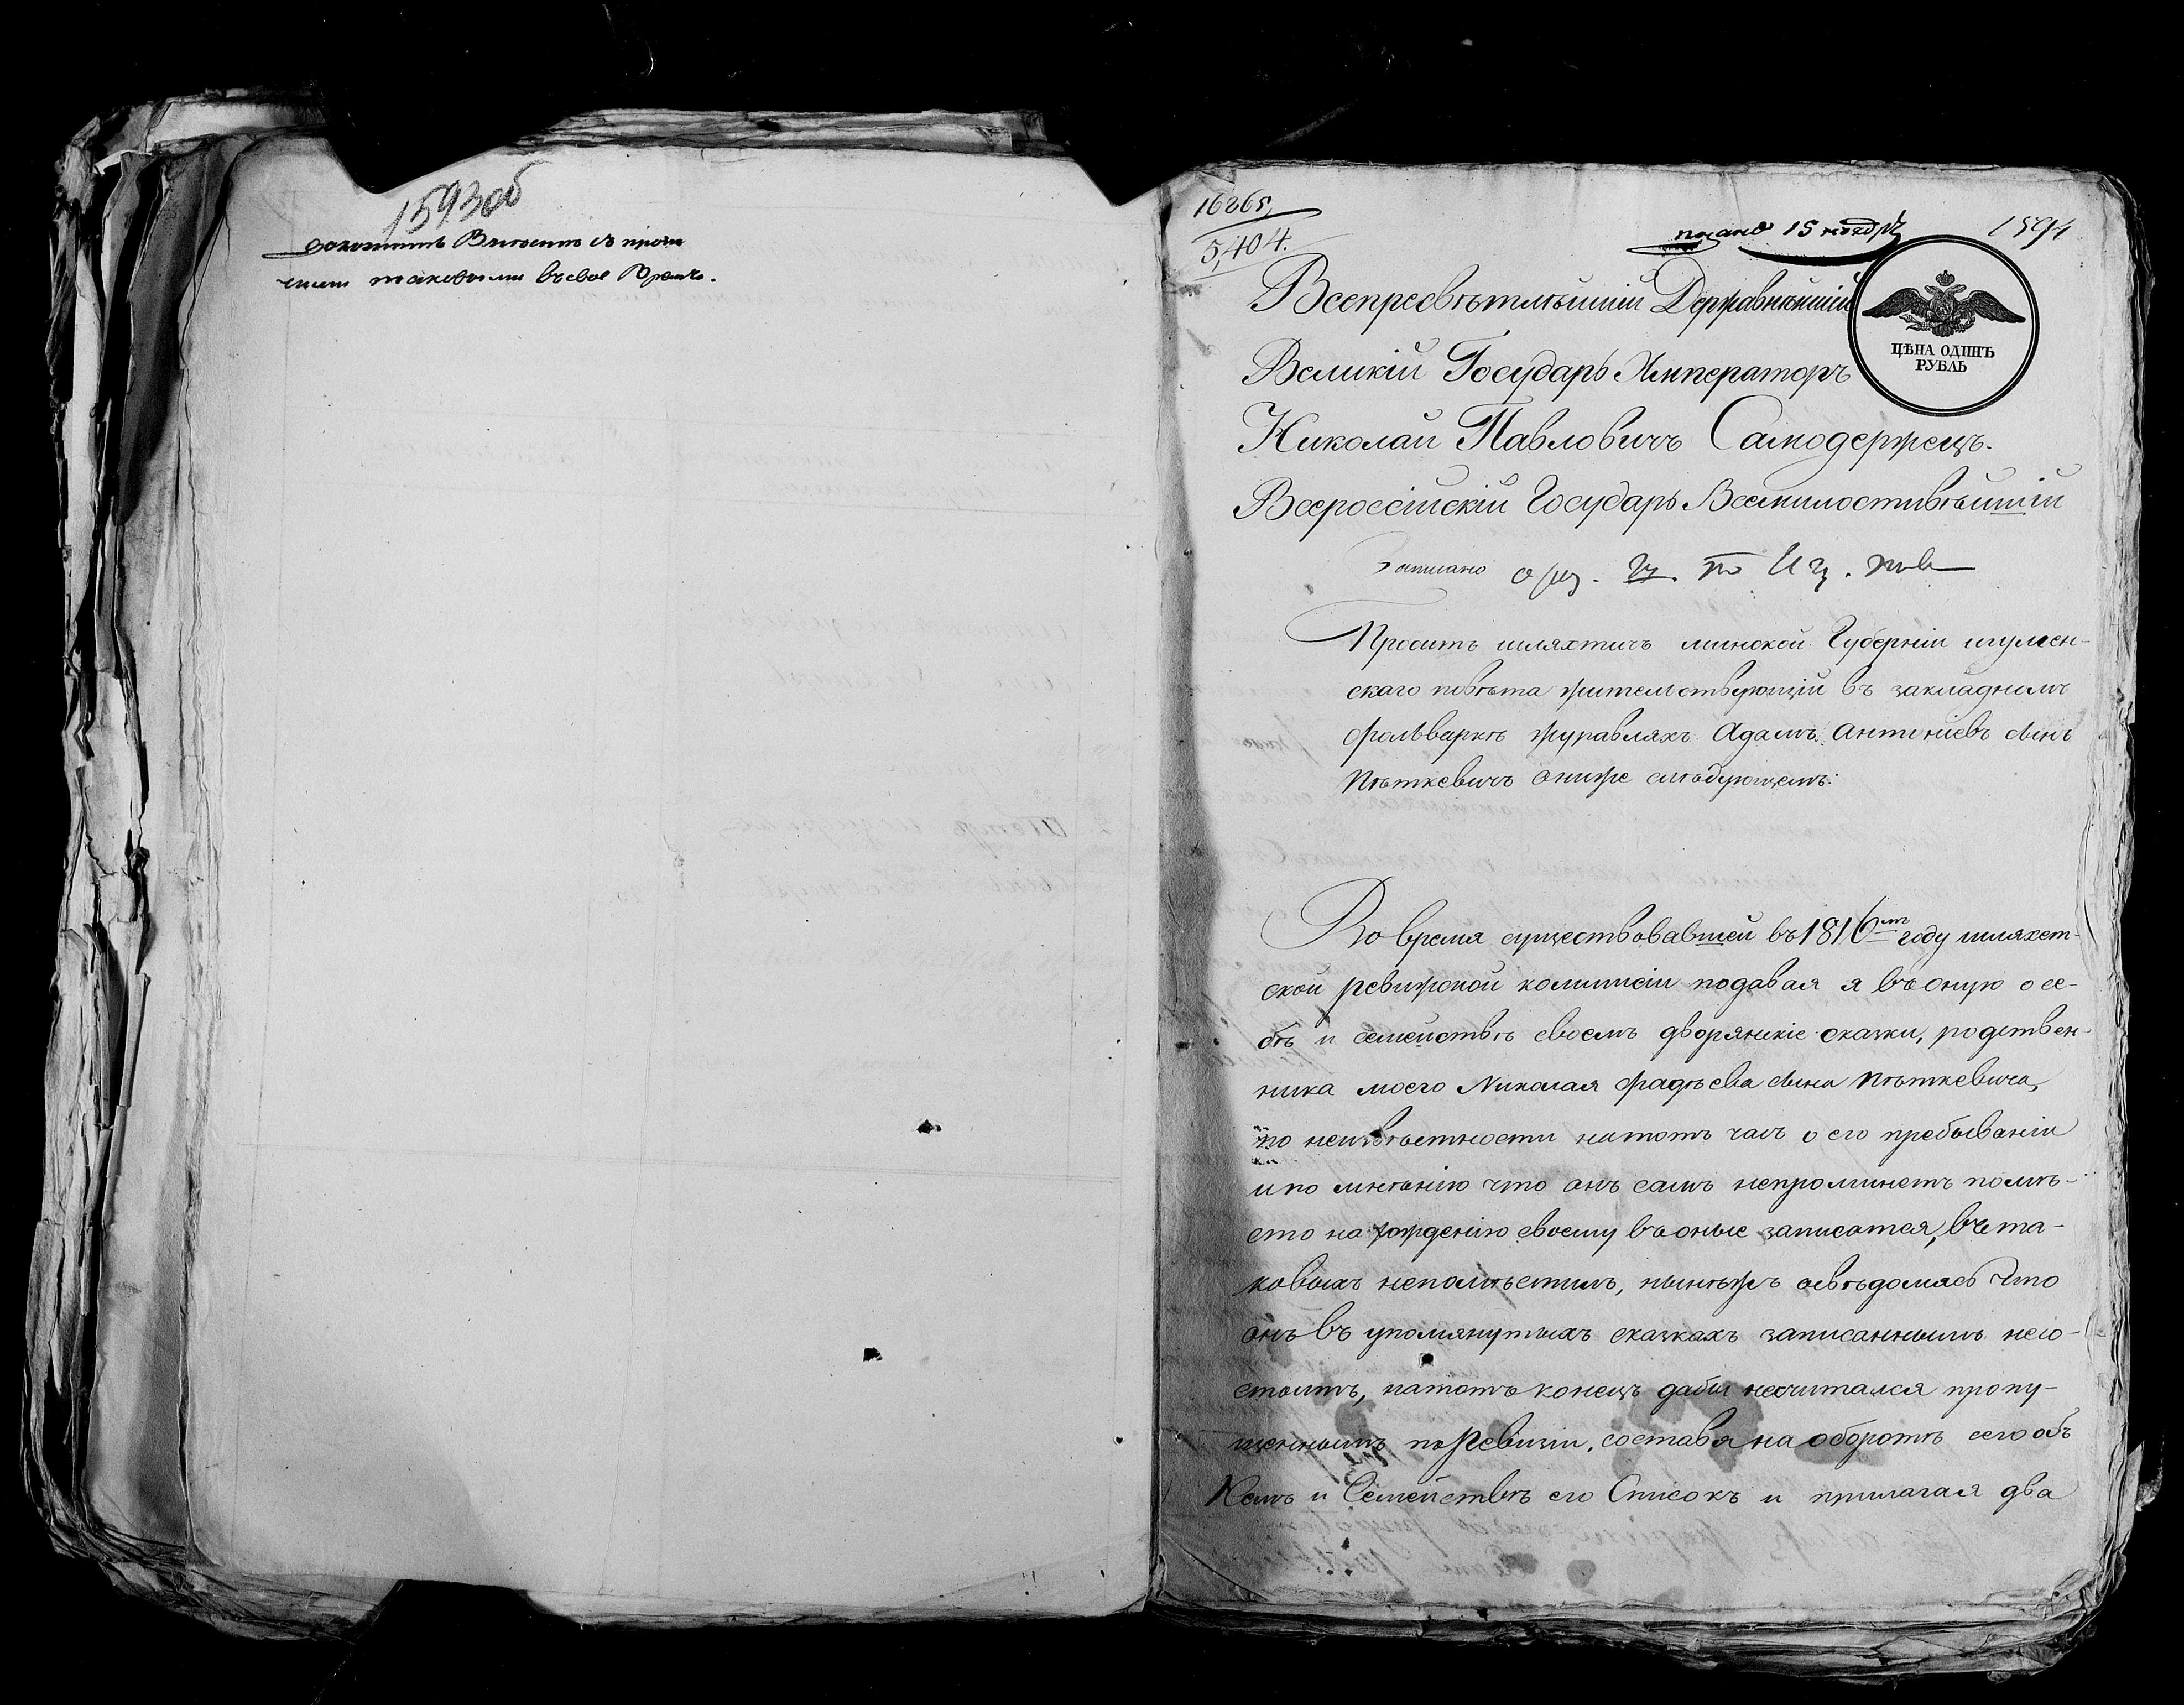 1593об
доложить вместе съ прочи
ми таковыми въ свое время.
16265
5,404.
подано 15 ноября
1594
ЦѢНА ОДИНЪ
РУБЛЬ
Всепресвѣтлѣйшій Державнѣйшій
Великій Государь Императоръ
Николай Павловичъ Самодержецъ
Всероссійскій Государь Всемилостивѣйшій
Записано
Проситъ шляхтичъ минской Губерніи игумен-
скаго повѣта жительствующій въ закладномъ
фольваркѣ журавляхъ Адамъ Антоніевъ сынъ
Пѣткевичъ о ниже слѣдующемъ:
Во время существовавшей въ 1816мъ году шляхет-
ской ревизской коммисіи подавая я въ оную о се-
бѣ и семействѣ своемъ дворянскіе сказки, родствен-
ника моего Николая фадѣева сына Пѣткевича,
по неизвѣстности на тотъ часъ о его пребываніи
и по мнѣнію что онъ самъ непроминетъ помѣ-
сто на рожденію своему въ оные записатся, въ та-
ковыхъ непомѣстилъ, нынѣжъ освѣдомясь что
онъ въ упомянутыхъ сказкахъ записаннымъ несо-
стоитъ, на тотъ конецъ дабы несчитался пропу-
щеннымъ по Ревизіи, составя на оборотѣ сего объ
Немъ и Семействѣ его Списокъ и прилагая два